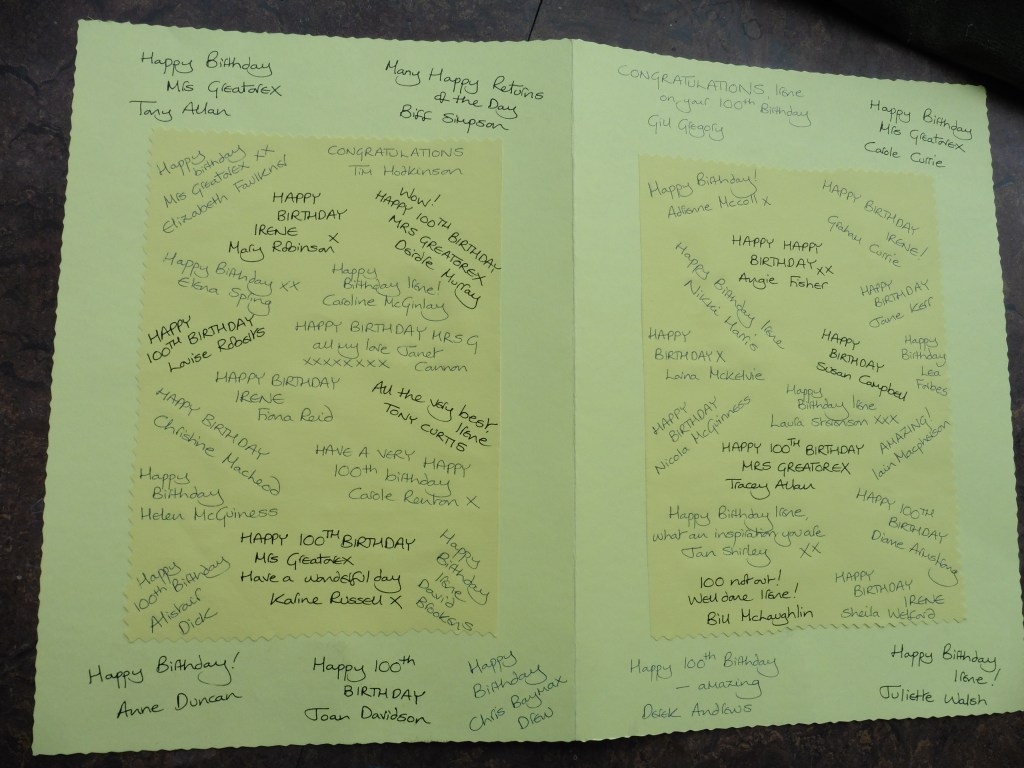 Happy Birthday
Mrs Greatorex
Tony Allan
Many Happy Returns
of the Day
Biff Simpson
Happy
birthday xx
Mrs Greatorex
Elizabeth Faulkner
CONGRATULATIONS
Tim Hodkinson
HAPPY
BIRTHDAY
IRENE
Mary Robinson x
Wow!
HAPPY 100TH BIRTHDAY
MRS GREATOREX
Deirdre Murray
Happy Birthday xx
Elena Spring
Happy
Birthday Irene!
Caroline McGinlay
HAPPY
100TH BIRTHDAY
Louise Roberts
HAPPY BIRTHDAY MRS G
all my love Janet
xxxxxxxx Cannon
HAPPY BIRTHDAY
IRENE
Fiona Reid
All the very best
Irene
TONY CURTIS
HAPPY BIRTHDAY
Christine Macleod
HAVE A VERY HAPPY
100th birthday
Carole Renton x
Happy
Birthday
Helen McGuiness
HAPPY 100TH BIRTHDAY
Mrs Greatorex
Have a wonderful day
Karine Russell x
Happy
100th Birthday
Alistair
Dick
Happy
Birthday
Irene
David
Happy Birthday!
Anne Duncan
Happy 100th
BIRTHDAY
Joan Davidson
Happy
Birthday
Chris Baymax
Drew
CONGRATULATIONS, Irene
on your 100th Birthday
Gill Gregory
Happy Birthday
Mrs Greatorex
Carole Currie
Happy Birthday!
Adrienne McColl x
HAPPY BIRTHDAY
IRENE!
Graham Currie
HAPPY HAPPY
BIRTHDAY xx
Angie Fisher
Happy Birthday Irene
Nikki Harris
HAPPY
BIRTHDAY
Jane Kerr
HAPPY
BIRTHDAY X
Laina McKelvie
HAPPY
BIRTHDAY
Susan Campbell
Happy
Birthday
Lea
Forbes
Happy
Birthday Irene
Laura xxx
HAPPY
BIRTHDAY
Nicola McGuinness
AMAZING!
Iain Macpherson
HAPPY 100TH BIRTHDAY
MRS GREATOREX
Tracey Allan
HAPPY 100TH
BIRTHDAY
Diane Armstrong
Happy Birthday Irene,
what an inspiration you are
Jan Shirley xx
100 not out!
Well done Irene!
Bill McLaughlin
HAPPY
BIRTHDAY
IRENE
Sheila Welford
Happy 100th Birthday
– amazing
Derek Andrews
Happy Birthday
Irene!
Juliette Walsh